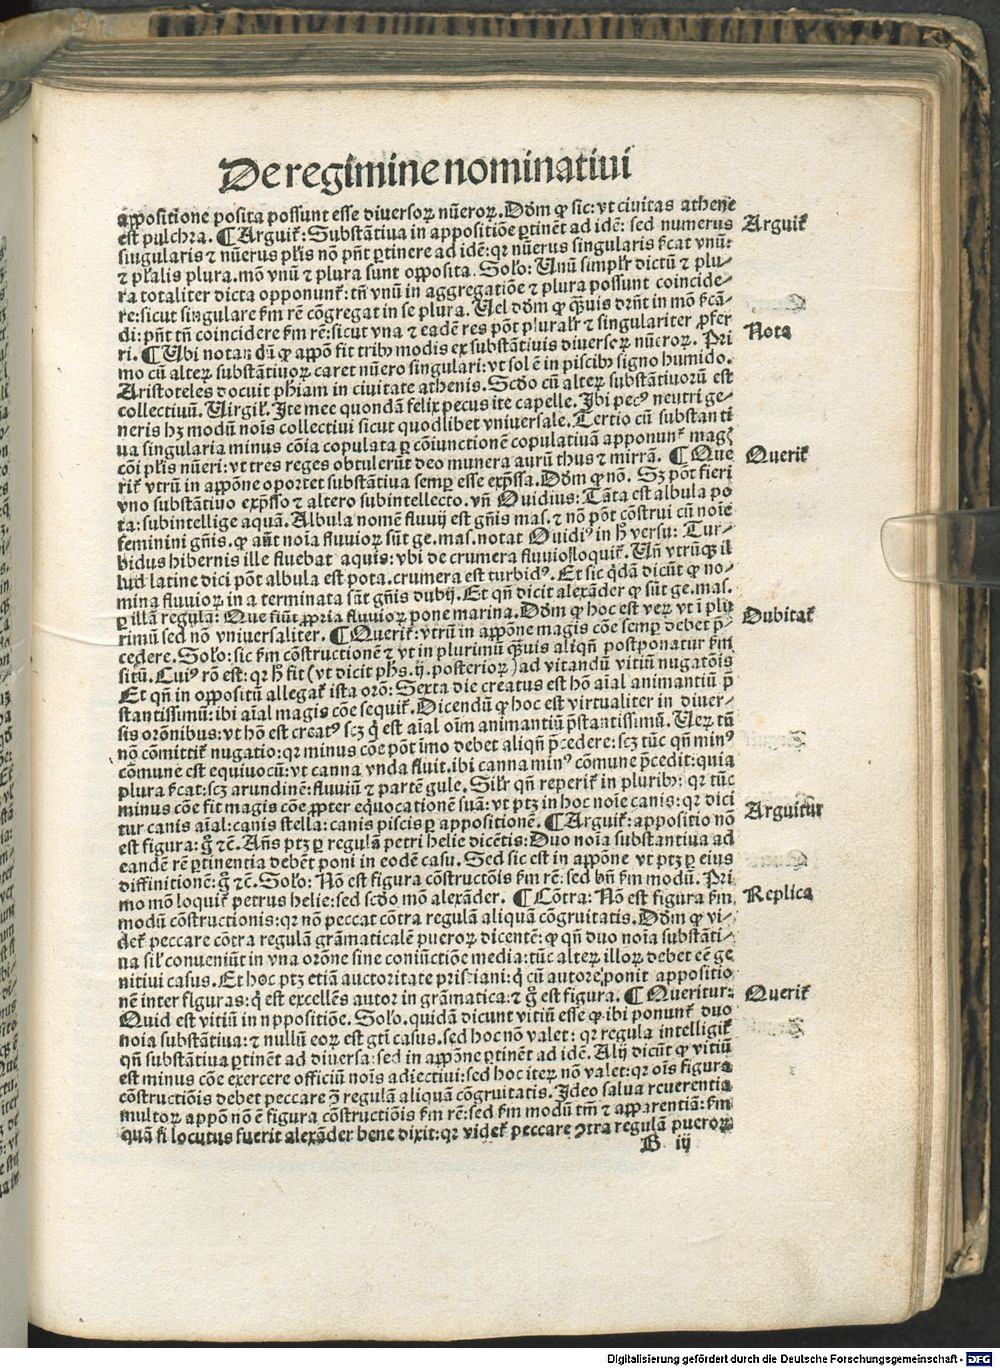 De regimine nominatiui
appositione posita possunt esse diuersoꝝ nūeroꝝ. Dōm ꝙ sic: vt ciuitas athene
est pulchra. ¶ Arguit̄: Substātiua in appositiōe ꝑtinēt ad idē: sed numerus
Arguit̄
singularis ⁊ nūerus pl̄is nō pn̄t ꝑtinere ad idē: qꝛ nūerus singularis s̄cat vnū:
⁊ pl̄alis plura. mō vnū ⁊ plura sunt opposita. Sol̄o: Unū simpl̄r dictū ⁊ plu⸗
ra totaliter dicta opponunt̄: tn̄ vnū in aggregatiōe ⁊ plura possunt coincide⸗
re: sicut singulare s̄m rē cōgregat in se plura. Uel dōm ꝙ q̄uis dr̄nt in mō s̄cā⸗
di: pn̄t tn̄ coincidere s̄m rē: sicut vna ⁊ eadē res pōt plural̄r ⁊ singulariter ꝓfer
ri. ¶ Ubi notandū ꝙ appō fit tribꝫ modis ex substātiuis diuersoꝝ nūeroꝝ. Pri
Nota
mo cū alteꝝ substātiuoꝝ caret nūero singulari: vt sol ē in piscibꝫ signo humido.
Aristoteles docuit ph̄iam in ciuitate athenis. Scd̄o cū alteꝝ substātiuorū est
collectiuū. Uirgil̄. Ite mee quondā felix pecus ite capelle. Ibi pecꝰ neutri ge⸗
neris hꝫ modū noīs collectiui sicut quodlibet vniuersale. Tertio cū substanti
ua singularia minus cōia copulata ꝑ cōiunctionē copulatiuā apponunt̄ magꝭ
cōi pl̄is nūeri: vt tres reges obtulerūt deo munera aurū thus ⁊ mirrā. ¶ Que
Querit̄
rit̄ vtrū in appōne oportet substātiua semꝑ esse exp̄ssa. Dōm ꝙ nō. Sꝫ pōt fieri
vno substātiuo exp̄sso ⁊ altero subintellecto. vn̄ Ouidius: Tāta est albula po
ta: subintellige aquā. Albula nomē fluuij est gn̄is mas. ⁊ nō pōt cōstrui cū noīe
feminini gn̄is. ꝙ aūt noīa fluuioꝝ sūt ge. mas. notat Ouidiꝰ in h̄ versu: Tur⸗
bidus hibernis ille fluebat aquis: vbi de crumera fluuio loquit̄. Uñ vtrūqꝫ il
lud latine dici pōt albula est pota. crumera est turbidꝰ. Et sic q̄dā dicūt ꝙ no⸗
mina fluuioꝝ in a terminata sūt gn̄is dubij. Et qn̄ dicit alexāder ꝙ sūt ge. mas.
ꝑ illā regulā: Que fiūt ꝓpria fluuioꝝ pone marina. Dōm ꝙ hoc est veꝝ vt ī plu
Dubitat̄
rimū sed nō vniuersaliter. ¶ Querit̄: vtrū in appōne magis cōe semꝑ debet p̄⸗
cedere. Sol̄o: sic s̄m cōstructionē ⁊ vt in plurimū q̄uis aliqn̄ postponatur s̄m
sitū. Cuiꝰ rō est: qꝛ h̄ fit (vt dicit ph̄s. ij. posterioꝝ) ad vitandū vitiū nugatōis
Et qn̄ in oppositū allegat̄ ista orō: Sexta die creatus est hō aīal animantiū p̄
stantissimū: ibi aīal magis cōe sequit̄. Dicendū ꝙ hoc est virtualiter in diuer⸗
sis orōnibus: vt hō est creatꝰ scꝫ q̇ est aīal oīm animantiū p̄stantissimū. Ueꝝ tn̄
nō cōmittit̄ nugatio: qꝛ minus cōe pōt īmo debet aliqn̄ p̄cedere: scꝫ tūc qn̄ minꝰ
cōmune est equiuocū: vt canna vnda fluit. ibi canna minꝰ cōmune p̄cedit: quia
plura s̄cat: scꝫ arundinē: fluuiū ⁊ partē gule. Sil̄r qn̄ reperit̄ in pluribꝫ: qꝛ tūc
minus cōe fit magis cōe ꝓpter eq̄uocationē suā: vt ptꝫ in hoc noīe canis: qꝛ dici
tur canis aīal: canis stella: canis piscis ꝑ appositionē. ¶ Arguit̄: appositio nō
Arguitur
est figura: g̊ ⁊c̄. Añs ptꝫ ꝑ regulā petri helie dicētis: Duo noīa substantiua ad
eandē rē ꝑtinentia debēt poni in eodē casu. Sed sic est in appōne vt ptꝫ ꝑ eius
diffinitionē: g̊ ⁊c̄. Sol̄o: Nō est figura cōstructōis s̄m rē: sed bn̄ s̄m modū. Pri
mo mō loquit̄ petrus helie: sed scd̄o mō alexāder. ¶ Cōtra: Nō est figura s̄m
Replica
modū cōstructionis: qꝛ nō peccat cōtra regulā aliquā cōgruitatis. Dōm ꝙ vi⸗
det̄ peccare cōtra regulā grāmaticalē pueroꝝ dicentē: ꝙ qn̄ duo noīa substāti⸗
ua sil̄ conueniūt in vna orōne sine coniūctiōe media: tūc alteꝝ illoꝝ debet eē ge
nitiui casus. Et hoc ptꝫ etiā auctoritate prisciani: q̇ cū autore ponit appositio
nē inter figuras: q̇ est excellēs autor in grāmatica: ⁊ g̊ est figura. ¶ Queritur:
Querit̄
Quid est vitiū in appositiōe. Sol̄o. quidā dicunt vitiū esse ꝙ ibi ponunt̄ duo
noīa substātiua: ⁊ nullū eoꝝ est gtī casus. sed hoc nō valet: qꝛ regula intelligit̄
qn̄ substātiua ꝑtinēt ad diuersa: sed in appōne ꝑtinēt ad idē. Alij dicūt ꝙ vitiū
est minus cōe exercere officiū noīs adiectiui: sed hoc iteꝝ nō valet: qꝛ oīs figura
cōstructiōis debet peccare ꝯ̄ regulā aliquā cōgruitatis. Ideo salua reuerentia
multoꝝ appō nō ē figura cōstructiōis s̄m rē: sed s̄m modū tm̄ ⁊ apparentiā: s̄m
quā si locutus fuerit alexāder bene dixit: qꝛ videt̄ peccare ꝯtra regulā pueroꝝ
B iij
Digitalisierung gefördert durch die Deutsche Forschungsgemeinschaft - DFG